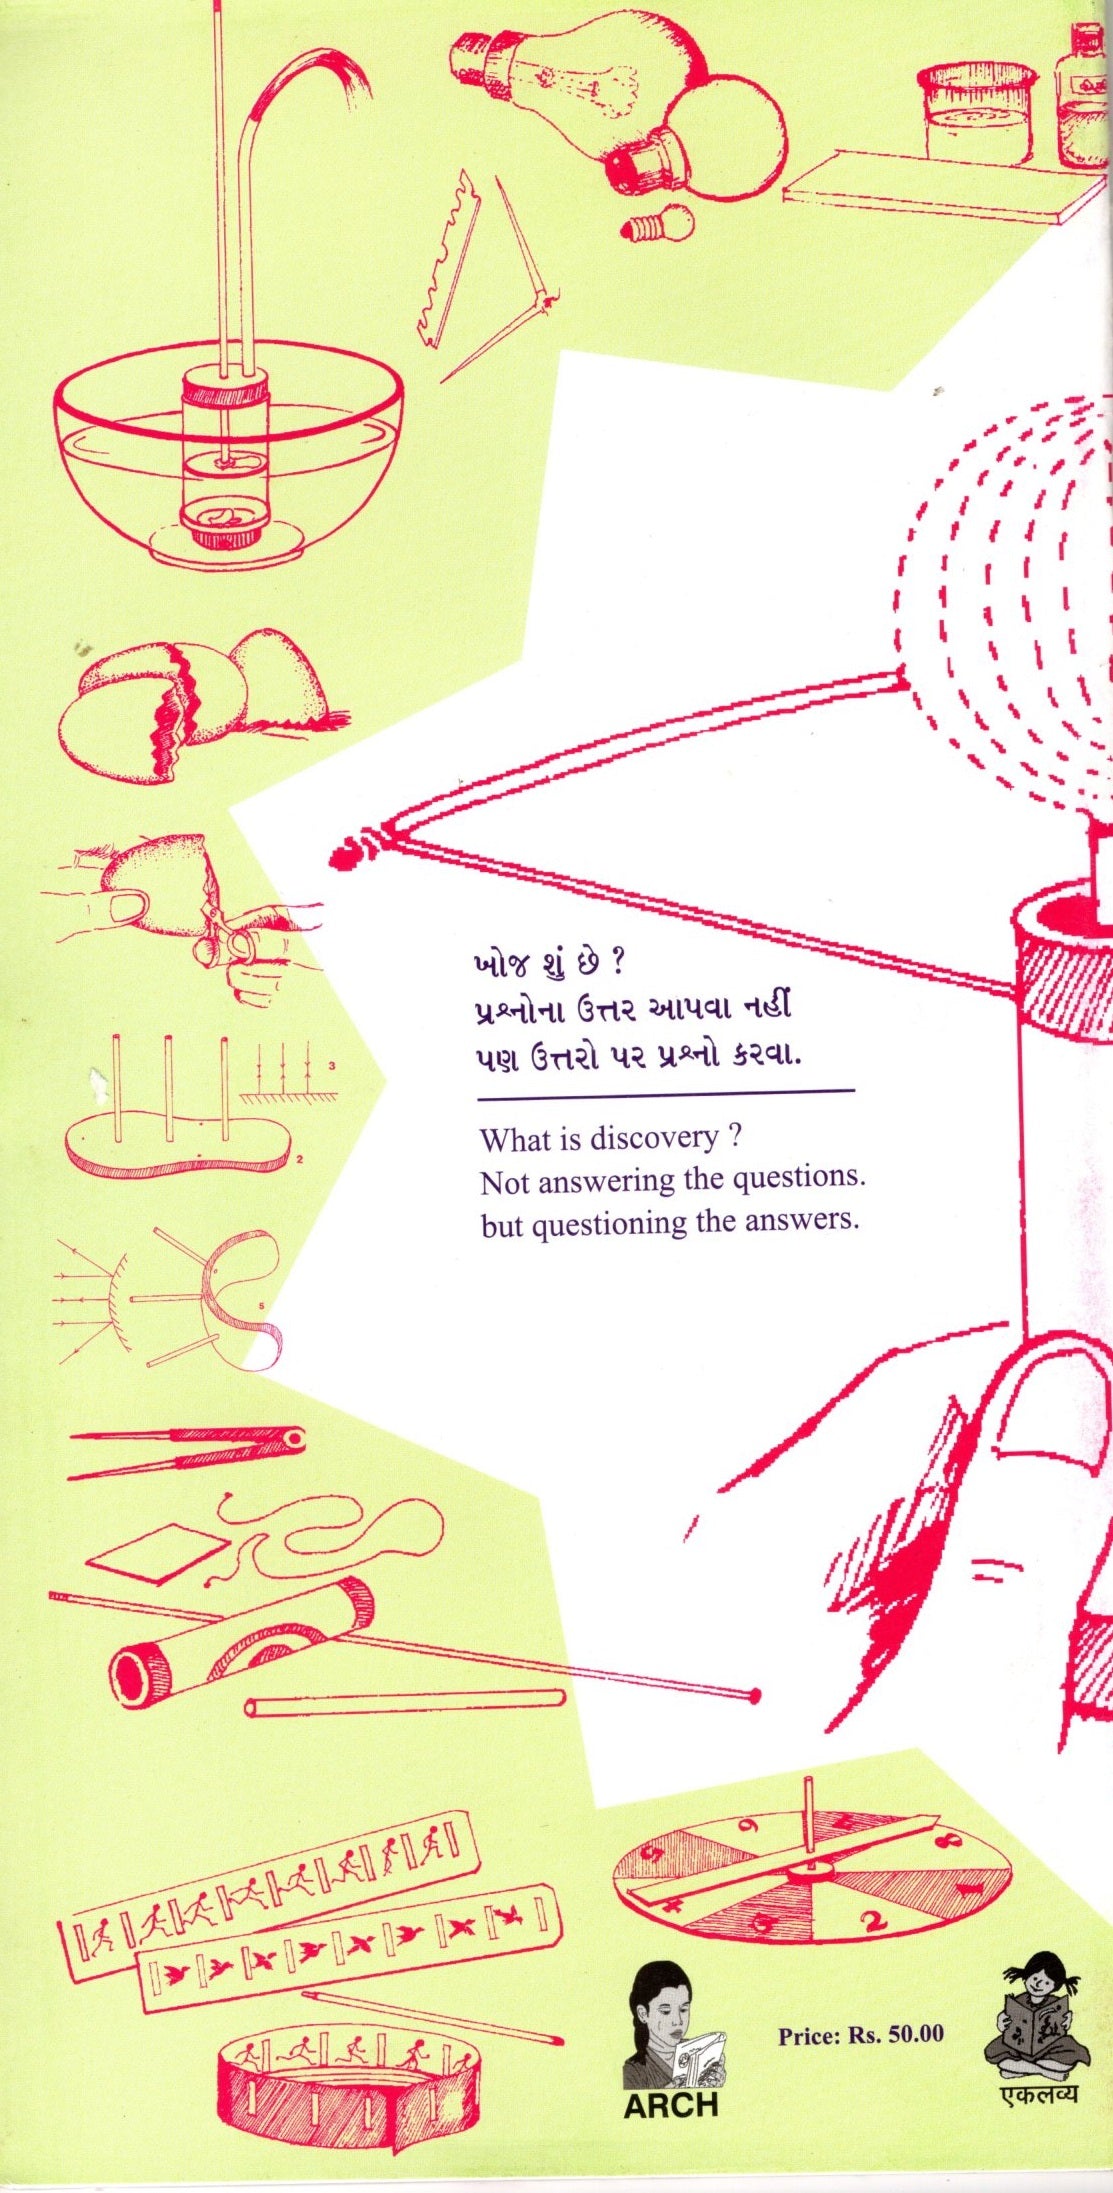 3
ખોજ શું છે ?
પ્રશ્નોના ઉત્તર આપવા નહીં
પણ ઉત્તરો પર પ્રશ્નો કરવા.
What is discovery ?
Not answering the questions.
but questioning the answers.
2
5
6
8
5
1
2
ARCH
Price: Rs. 50.00
एकलव्य